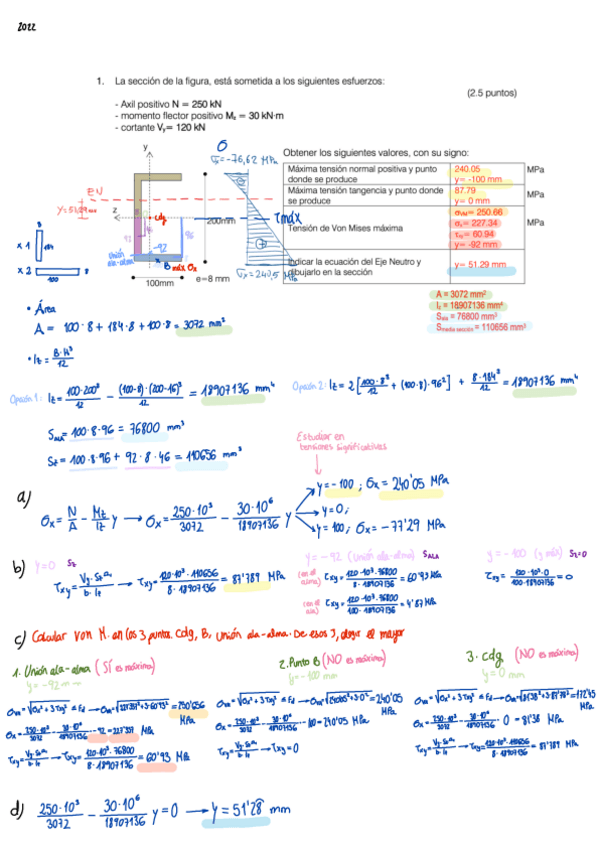 2022
1. La sección de la figura, está sometida a los siguientes esfuerzos:
(2.5 puntos)
- Axil positivo N = 250 kN
- momento flector positivo Mz = 30 kN·m
- cortante Vy= 120 kN
y
σx=-76,62 MPa
EN
y=51,29 mm
z
cdg
200mm
τmax
92
96
-92
Unión ala-alma
B
máx σx
σx=240,5 MPa
100mm
e=8 mm
x 1
8
184
x 2
8
100
Obtener los siguientes valores, con su signo:
Máxima tensión normal positiva y punto donde se produce
240.05
y= -100 mm
MPa
Máxima tensión tangencia y punto donde se produce
87.79
y= 0 mm
MPa
Tensión de Von Mises máxima
σVM= 250.66
σx= 227.34
τxy= 60.94
y= -92 mm
MPa
Indicar la ecuación del Eje Neutro y dibujarlo en la sección
y= 51.29 mm
A = 3072 mm²
Iz = 18907136 mm⁴
Sala = 76800 mm³
Smedia sección = 110656 mm³
• Área
A = 100·8 + 184·8 + 100·8 = 3072 mm²
• Iz = B·H³/12
Opción 1: Iz = 100·200³/12 - (100-8)·(200-16)³/12 = 18907136 mm⁴
Opción 2: Iz = 2[100·8³/12 + (100·8)·96²] + 8·184³/12 = 18907136 mm⁴
SALA = 100·8·96 = 76800 mm³
Sz = 100·8·96 + 92·8·46 = 110656 mm³
Estudiar en
tensiones significativas
a)
σx = N/A - Mz/Iz y → σx = 250·10³/3072 - 30·10⁶/18907136 y
y=-100 ; σx = 240'05 MPa
y=0;
y=100; σx = -77'29 MPa
b) y=0 Sz
τxy = Vy·Sz/b·Iz → τxy = 120·10³·110656/8·18907136 = 87'789 MPa
y=-92 (Unión ala-alma) SALA
(en el alma) τxy = 120·10³·76800/8·18907136 = 60'93 MPa
(en el ala) τxy = 120·10³·76800/100·18907136 = 4'87 MPa
y=-100 (y máx) Sz=0
τxy = 120·10³·0/100·18907136 = 0
c) Calcular Von M. en los 3 puntos. Cdg, B, unión ala-alma. De esos 3, elegir el mayor
1. Unión ala-alma (SÍ es máximo)
y=-92 mm
σvm = √σx² + 3τxy² ≤ fd → σvm = √227'339² + 3·60'93² = 250'656 MPa
σx = 250·10³/3072 - 30·10⁶/18907136 · -92 = 227'339 MPa
τxy = Vy·Sz/b·Iz → τxy = 120·10³·76800/8·18907136 = 60'93 MPa
2. Punto B (NO es máximo)
y=-100 mm
σvm = √σx² + 3τxy² ≤ fd → σvm = √240'05² + 3·0² = 240'05 MPa
σx = 250·10³/3072 - 30·10⁶/18907136 · -100 = 240'05 MPa
τxy = Vy·Sz/b·Iz → τxy = 0
3. cdg (NO es máximo)
y=0 mm
σx = 250·10³/3072 - 30·10⁶/18907136 · 0 = 81'38 MPa
τxy = Vy·Sz/b·Iz → τxy = 120·10³·110656/8·18907136 = 87'789 MPa
d) 250·10³/3072 - 30·10⁶/18907136 y = 0 → y = 51'28 mm